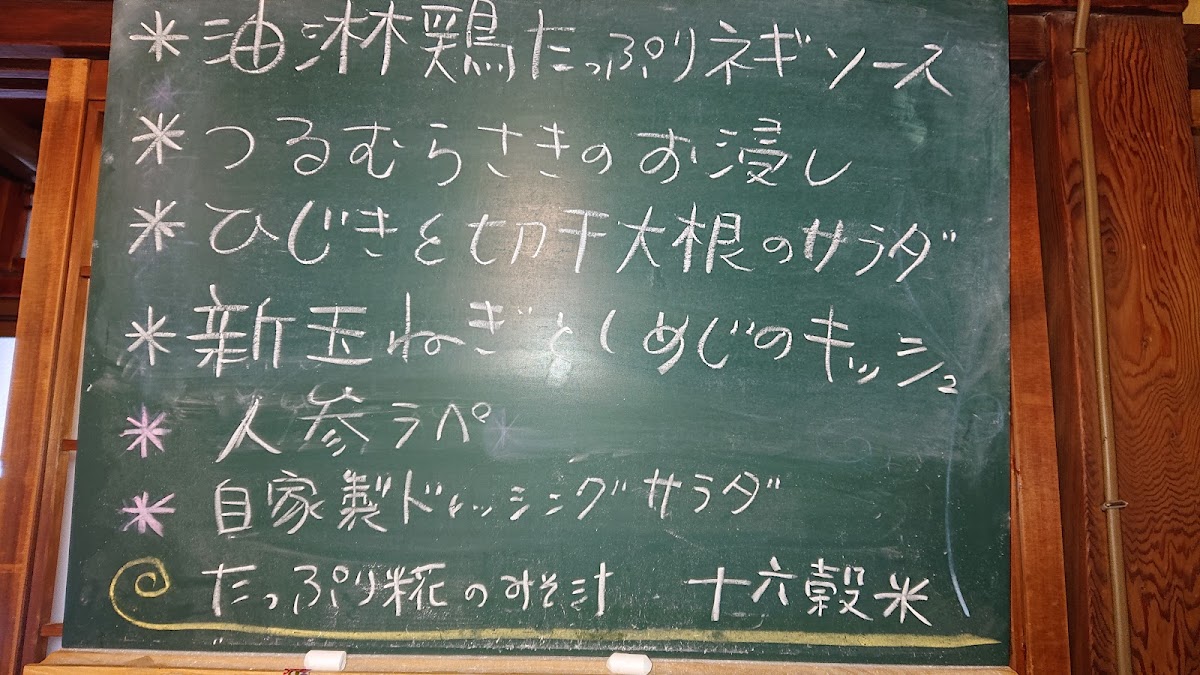 * 油淋鶏たっぷりネギソース
* つるむらさきのお浸し
* ひじきと切干大根のサラダ
* 新玉ねぎとしめじのキッシュ
* 人参ラペ
* 自家製ドレッシングサラダ
たっぷり糀のみそ汁 十六穀米